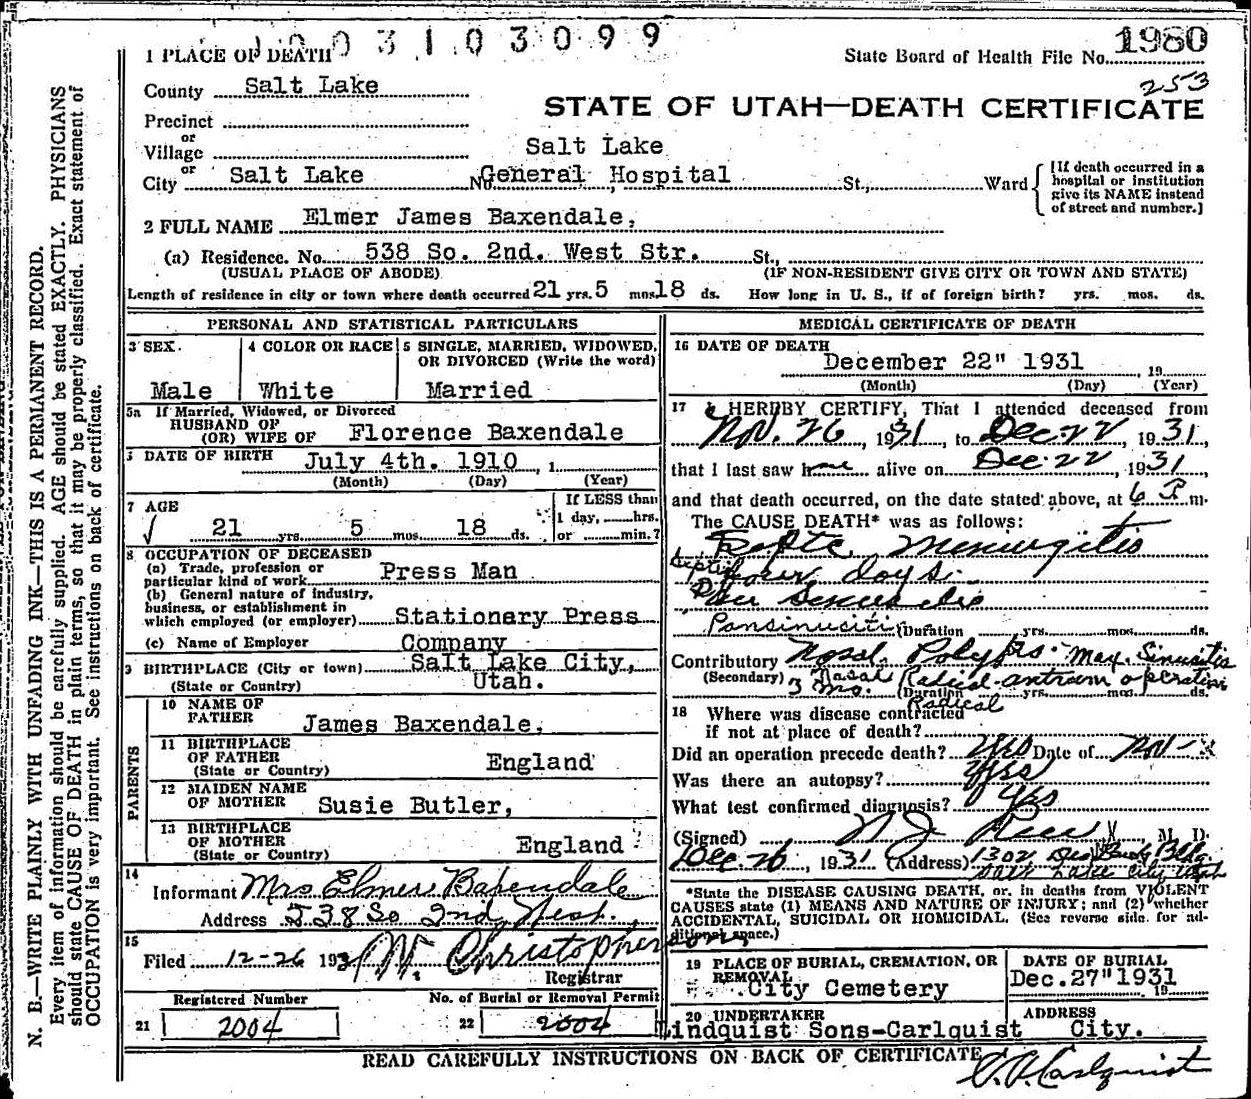 1003103099
1 PLACE OF DEATH
State Board of Health File No. 1980
253
County Salt Lake
STATE OF UTAH—DEATH CERTIFICATE
Precinct
or
Village
Salt Lake
or
City Salt Lake No. General Hospital St., Ward
[If death occurred in a
hospital or institution
give its NAME instead
of street and number.]
2 FULL NAME Elmer James Baxendale,
(a) Residence. No. 538 So. 2nd. West Str. St.,
(USUAL PLACE OF ABODE) (IF NON-RESIDENT GIVE CITY OR TOWN AND STATE)
Length of residence in city or town where death occurred 21 yrs. 5 mos. 18 ds. How long in U. S., if of foreign birth? yrs. mos. ds.
PERSONAL AND STATISTICAL PARTICULARS
3 SEX. 4 COLOR OR RACE 5 SINGLE, MARRIED, WIDOWED,
OR DIVORCED (Write the word)
Male White Married
5a If Married, Widowed, or Divorced
HUSBAND OF
(OR) WIFE OF Florence Baxendale
DATE OF BIRTH July 4th. 1910, 1
(Month) (Day) (Year)
7 AGE
If LESS than
1 day, hrs.
or min.?
21 yrs. 5 mos. 18 ds.
8 OCCUPATION OF DECEASED
(a) Trade, profession or
particular kind of work Press Man
(b) General nature of industry,
business, or establishment in
which employed (or employer) Stationery Press
(c) Name of Employer Company
9 BIRTHPLACE (City or town) Salt Lake City,
(State or Country) Utah.
PARENTS
10 NAME OF
FATHER James Baxendale,
11 BIRTHPLACE
OF FATHER England
(State or Country)
12 MAIDEN NAME
OF MOTHER Susie Butler,
13 BIRTHPLACE
OF MOTHER England
(State or Country)
14
Informant Mrs Elmer Baxendale
Address 538 So 2nd West.
15
Filed 12-26 1931 W. Christopherson
Registrar
Registered Number
21 2004
No. of Burial or Removal Permit
22 2004
MEDICAL CERTIFICATE OF DEATH
16 DATE OF DEATH
December 22" 1931, 19
(Month) (Day) (Year)
17 I HEREBY CERTIFY, That I attended deceased from
Nov. 26, 1931, to Dec. 22, 1931,
that I last saw h alive on Dec. 22, 1931,
and that death occurred, on the date stated above, at 6 P. m.
The CAUSE DEATH* was as follows:
Septic Meningitis
four days.
Pansinusitis (Duration yrs. mos. ds.
Contributory Nasal Polyps. Max. Sinusitis
(Secondary) 3 mo. Nasal Radical antrum operation
(Duration yrs. mos. ds.
Radical
18 Where was disease contracted
if not at place of death?
Did an operation precede death? Yes Date of Nov -
Was there an autopsy? Yes
What test confirmed diagnosis? Yes
(Signed) N J Rees, M. D.
Dec 26, 1931. (Address) 1302 Des Bldg
Salt Lake City Utah
*State the DISEASE CAUSING DEATH, or, in deaths from VIOLENT
CAUSES state (1) MEANS AND NATURE OF INJURY; and (2) whether
ACCIDENTAL, SUICIDAL OR HOMICIDAL. (See reverse side for ad-
ditional space.)
19 PLACE OF BURIAL, CREMATION, OR
REMOVAL
City Cemetery
DATE OF BURIAL
Dec. 27" 1931
19
20 UNDERTAKER
Lindquist Sons-Carlquist
ADDRESS
City.
READ CAREFULLY INSTRUCTIONS ON BACK OF CERTIFICATE
C. A. Carlquist
N. B.—WRITE PLAINLY WITH UNFADING INK—THIS IS A PERMANENT RECORD.
Every item of information should be carefully supplied. AGE should be stated EXACTLY. PHYSICIANS
should state CAUSE OF DEATH in plain terms, so that it may be properly classified. Exact statement of
OCCUPATION is very important. See instructions on back of certificate.